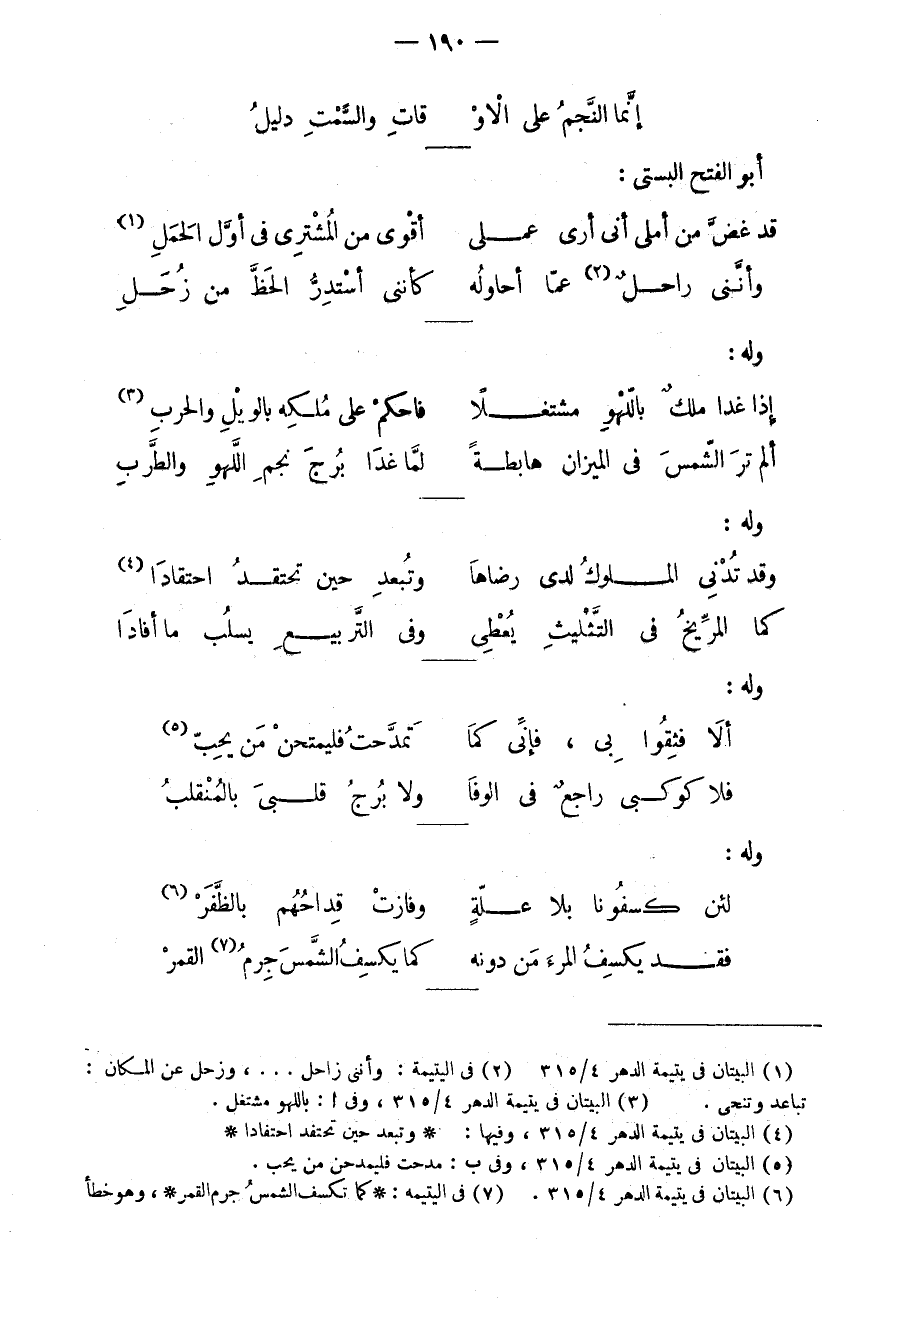 — ١٩٠ —
إنَّما النَّجمُ على الْاوْ قاتِ والسَّمْتِ دليلُ
أبو الفتح البستى :
قد غضَّ من أملى أنى أرى عمـــلى أقْوى من المُشْتَرِى فى أوَّل الحَمَلِ (١)
وأنَّــنى راحــلٌ (٢) عمّا أحاولُه كأننى أسْتدِرُّ الحَظَّ من زُحَــلِ
وله :
إذا غدا ملكٌ باللّهْوِ مشتغــــلًا فاحكمْ على مُلـكِه بالويْلِ والحربِ (٣)
ألم ترَ الشّمسَ فى الميزان هابطــةً لمَّا غدَا بُرجَ نجمِ اللَّهوِ والطَّربِ
وله :
وقد تُدْنِى المــــلوكُ لدى رضاهاَ وتُبعدِ حين تحتقــدُ احتقادَا (٤)
كما المرِّيخُ فى التَّثْليثِ يُعْطِى وفى التَّربيــعِ يسلُب ما أفادَا
وله :
ألَا فثِقُوا بِى ، فإنِّى كمَا تَمدَّحت فليمتحنْ مَن يحِبّ (٥)
فلا كوكـبى راجعٌ فى الوفَا ولا بُرجُ قلــبىَ بالمُنْقلبُ
وله :
لئن كسفُونا بلا عــلّةٍ وفازتْ قِداحُهُم بالظَّفَرْ (٦)
فقــــد يكسِفُ المرءَ مَن دونه كما يكسِفُ الشَّمسَ جِرمُ (٧) القمرْ
(١) البيتان فى يتيمة الدهر ٤/٣١٥ (٢) فى اليتيمة : وأننى زاحل . . . ، وزحل عن المكان :
تباعد وتنحى . (٣) البيتان فى يتيمة الدهر ٤/٣١٥ ، وفى ا : باللهو مشتغل .
(٤) البيتان فى يتيمة الدهر ٤/٣١٥ ، وفيها : * وتبعد حين تحتفد احتفادا *
(٥) البيتان فى يتيمة الدهر ٤/٣١٥ ، وفى ب : مدحت فليمدحن من يحب .
(٦) البيتان فى يتيمة الدهر ٤/٣١٥ . (٧) فى اليتيمه : * كما تكسف الشمسُ جرم القمر * ، وهو خطأ